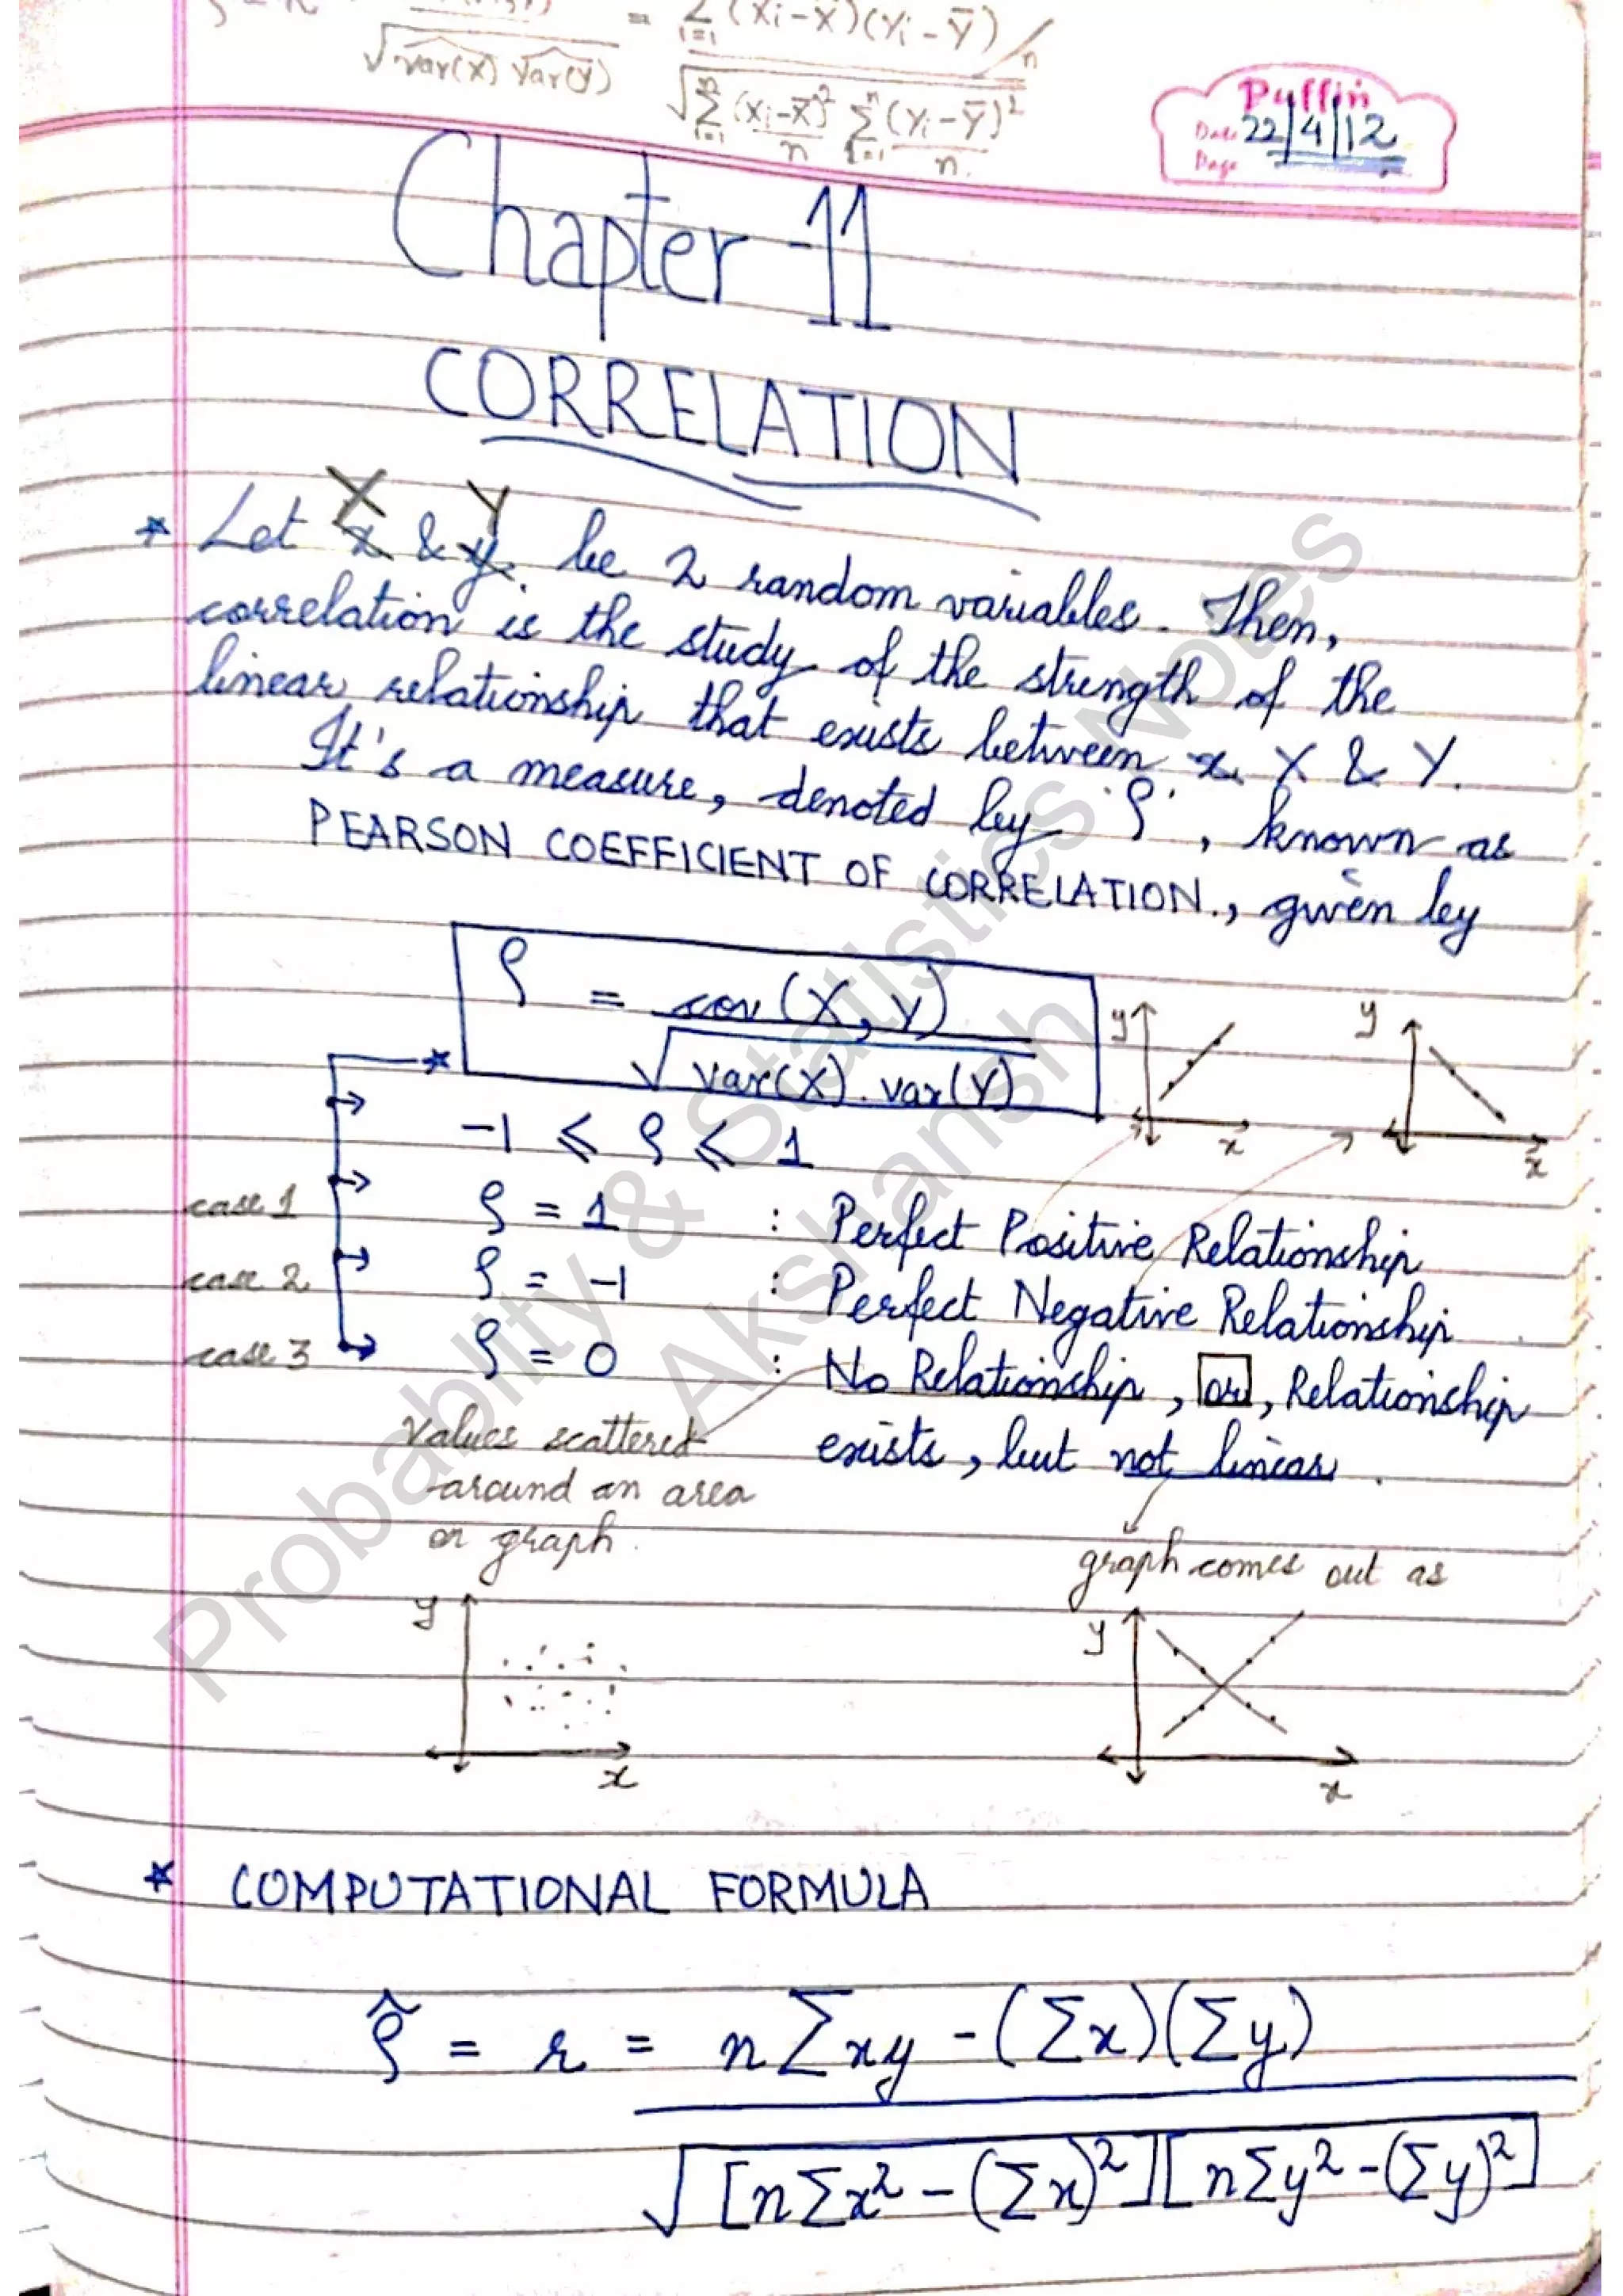 √var(X) var(Y) = Σ i=1 (Xi - X̄)(Yi - Ȳ) / n
√ Σ i=1 n (Xi - X̄)² / n Σ i=1 n (Yi - Ȳ)² / n.
Puffin
Date 22/4/12
Page
Chapter-11
CORRELATION
* Let X & Y be 2 random variables. Then,
correlation is the study of the strength of the
linear relationship that exists between X & Y.
It's a measure, denoted by 'ρ', known as
PEARSON COEFFICIENT OF CORRELATION., given by
ρ = cov(X, Y)
√var(X).var(Y)
y x
y x
-1 ≤ ρ ≤ 1
case 1 ρ = 1 : Perfect Positive Relationship
case 2 ρ = -1 : Perfect Negative Relationship
case 3 ρ = 0 : No Relationship, or, Relationship
exists, but not linear.
Values scattered
around an area
on graph.
graph comes out as
y x
y x
* COMPUTATIONAL FORMULA
ρ̂ = r = nΣxy - (Σx)(Σy)
√[nΣx² - (Σx)²][nΣy² - (Σy)²]
Probablity & Statistics Notes
Akshansh